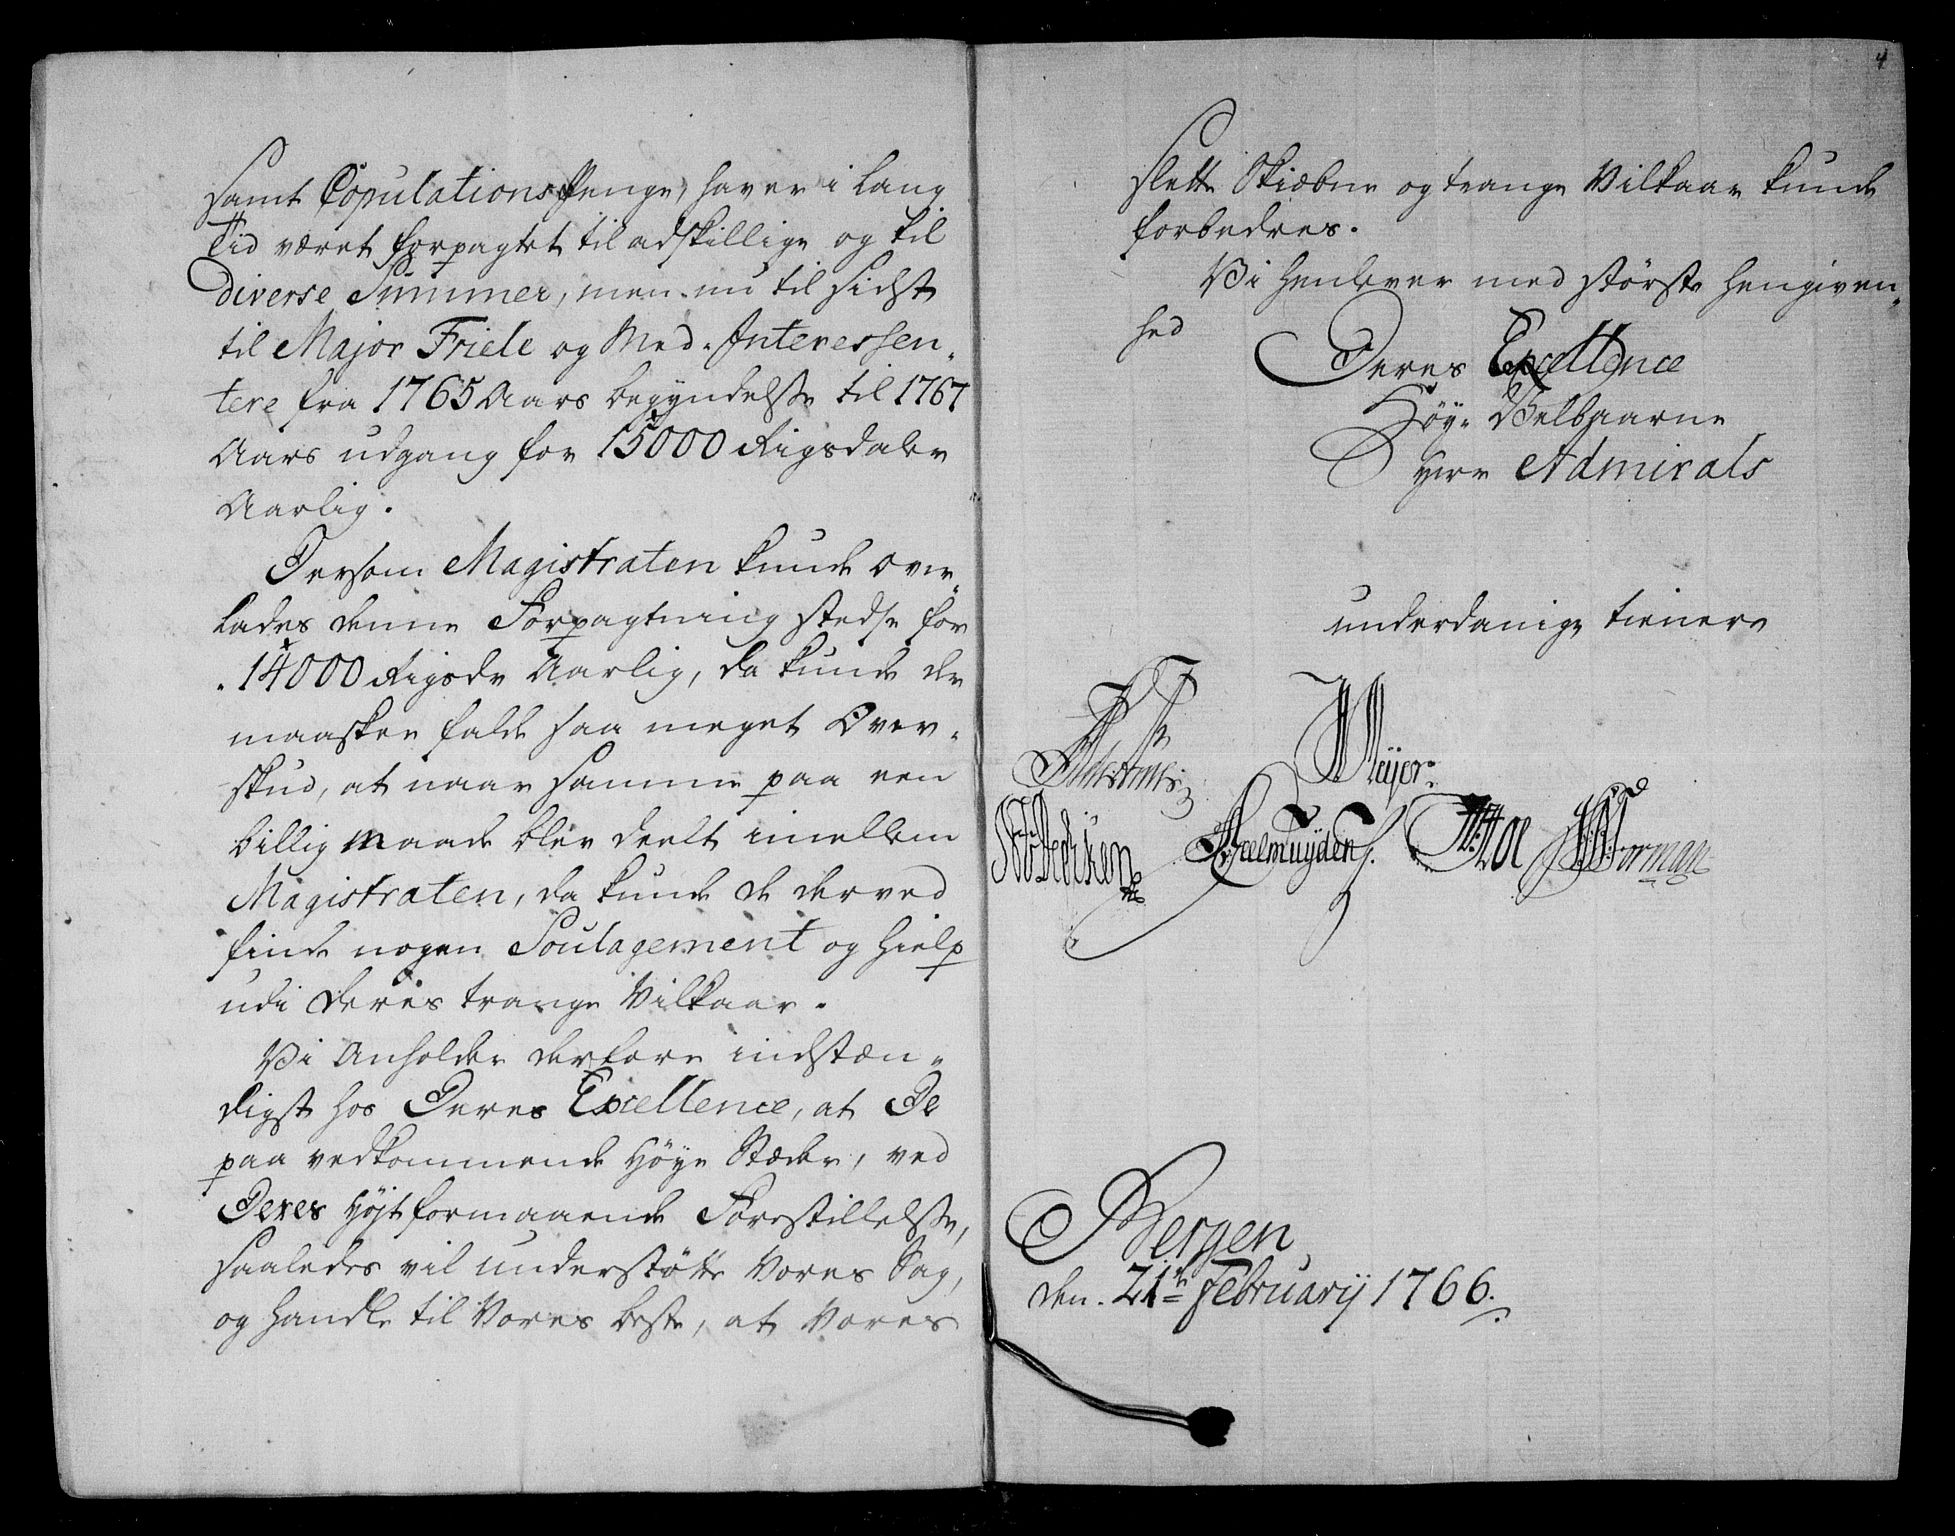 samt Copulations Penge, haver i lang
Tid været forpagtet til adskillige og til
diverse Summer, men nu til sidst
til Major Friele og Med-Interessen-
tere fra 1765 Aars begyndelse til 1767
Aars udgang for 15000 Rigsdaler
Aarlig.
Dersom Magistraten kunde over-
lades denne Forpagtning stedse for
14000 Rigsdr Aarlig, da kunde der
maaskee falde saa meget Over-
skud, at naar samme paa een
billig maade blev deelt imellem
Magistraten, da kunde de derved
finde nogen Soulagement og hielp
udi deres trange Vilkaar.
Vi Anholder derfore indstæn-
digst hos Deres Excellence, at De
paa vedkommende Høye Stæder, ved
Deres Højtformaaende Forestillelse,
saaledes vil understøtte Vores Sag,
og handle til Vores beste, at Vores
4
slette Skiæbne og trange Vilkaar kunde
forbedres.
Vi henlever med største hengiven-
hed
Deres Excellence
Høy-Velbaarne
Herr Admirals
underdanige tienere
Meyer.
Fredrichsen
Geelmuyden
Hoe
Worman
Bergen
den. 21de Februarij 1766.